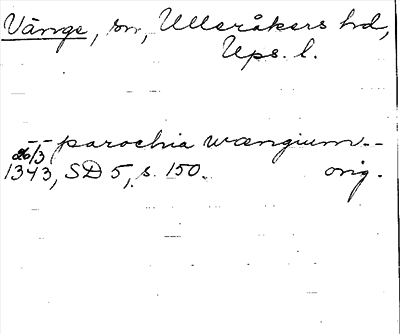 Vänge, sn, Ulleråkers hd,
Ups. l.
-- parochia wængium --
26/3
1343, SD 5, s. 150. orig.